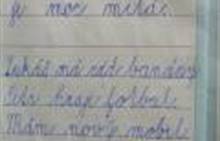 je moc milá.
Lukáš má rád banány
Petr hraje fotbal.
Mám nový mobil.